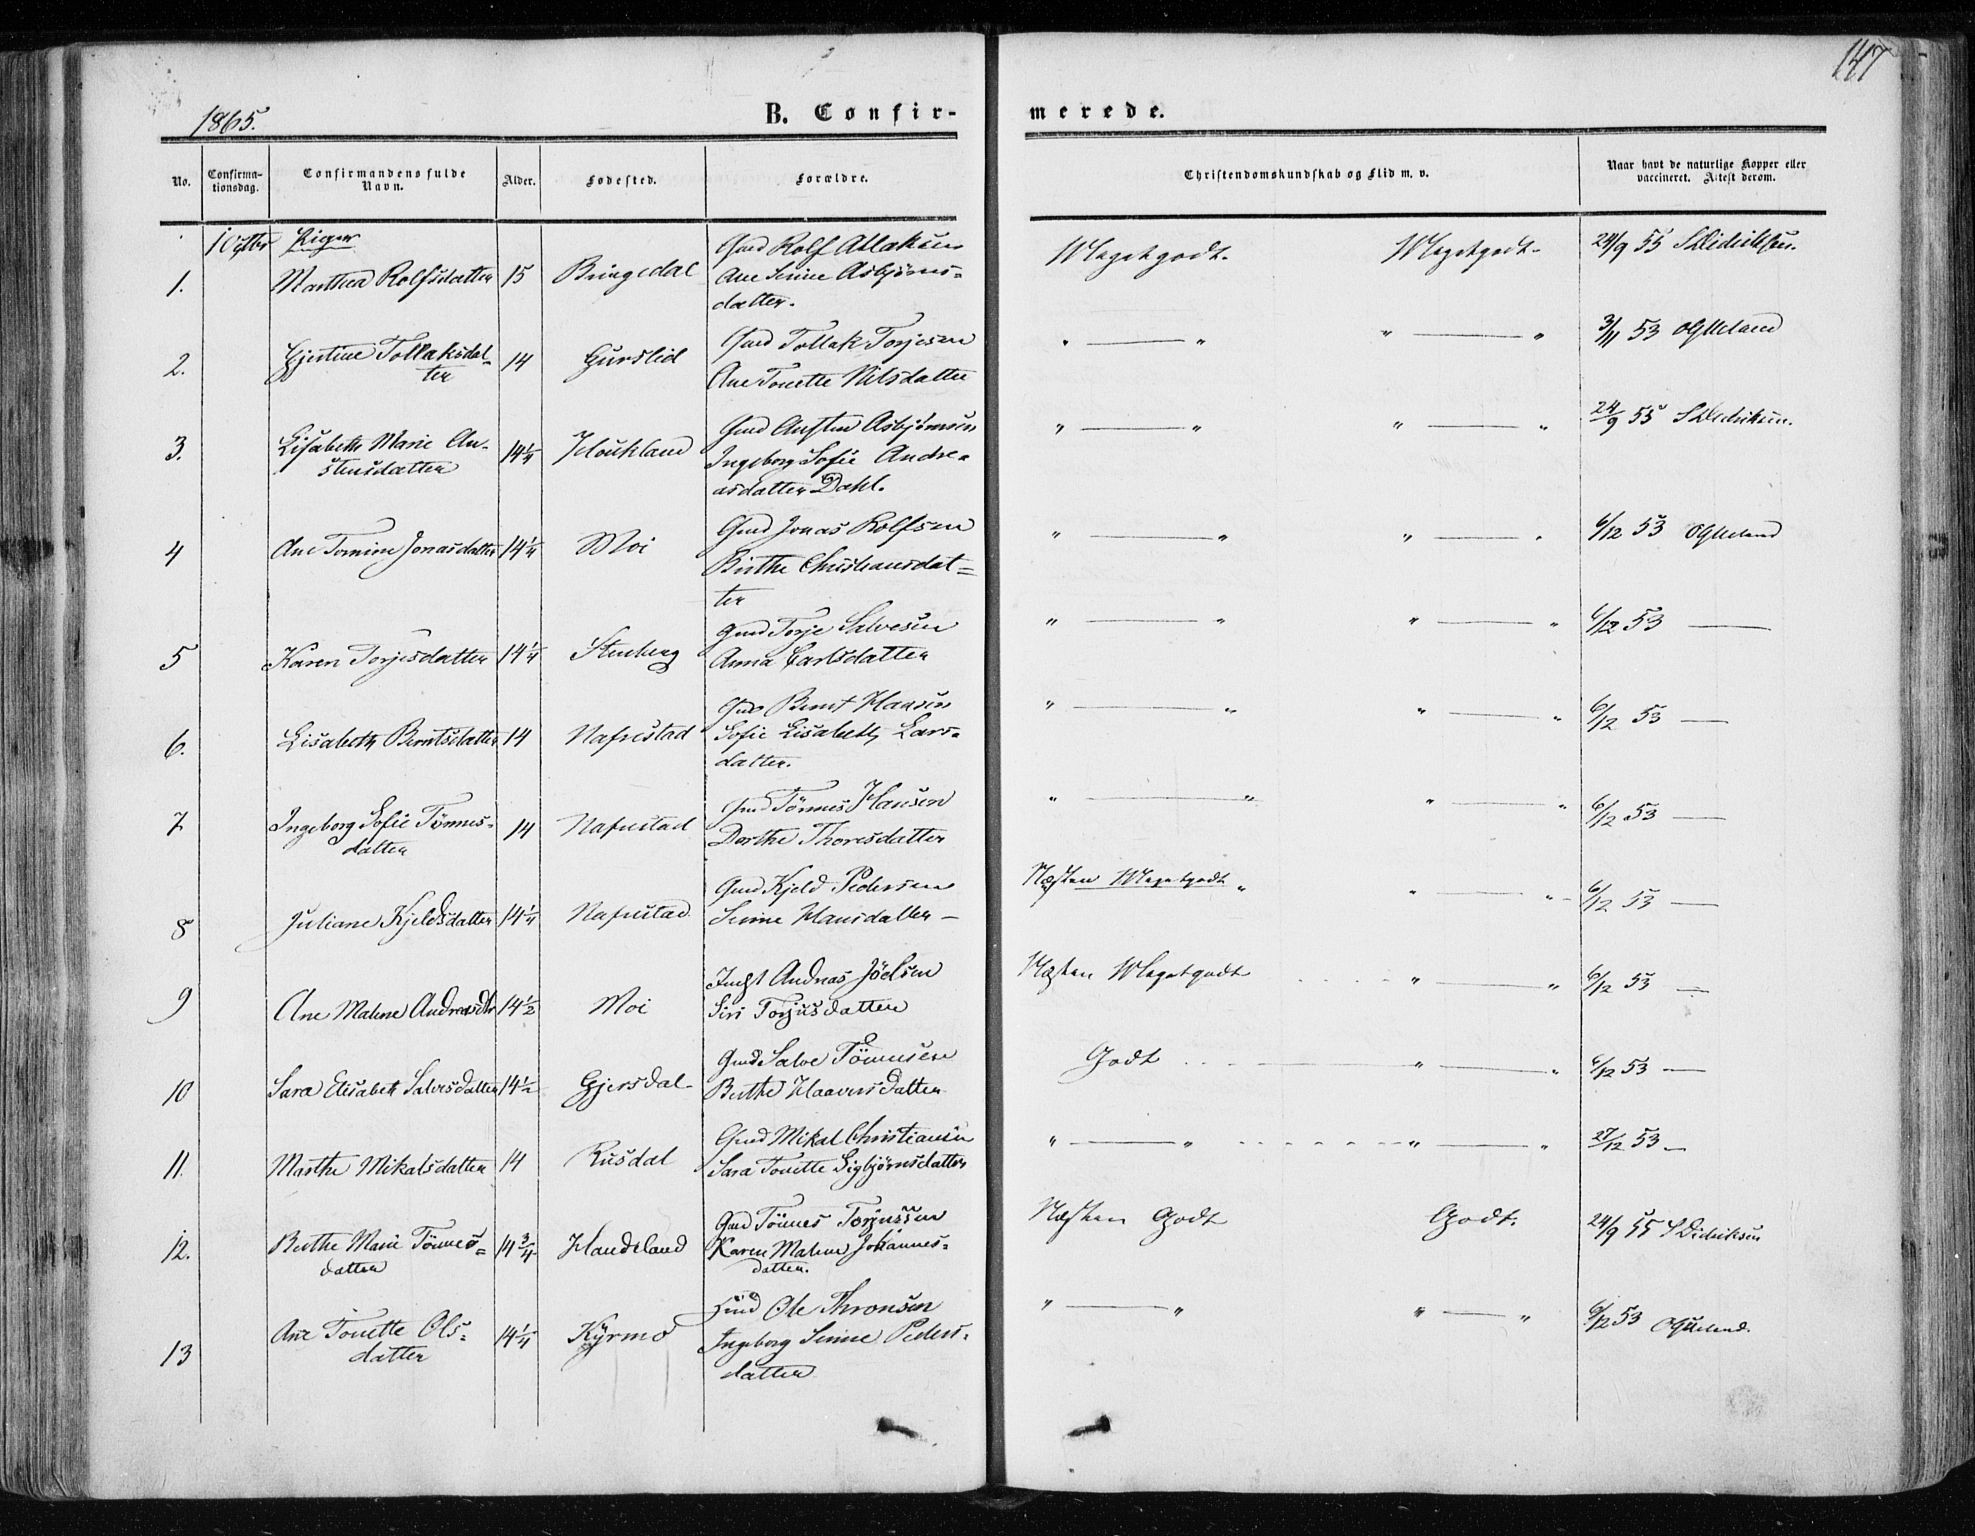 147
1865.
B. Confir-
merede.
No.
Confirma-
tionsdag.
Confirmandens fulde
Navn.
Alder.
Fødested.
Forældre.
Christendomskundskab og Flid m. v.
Naar havt de naturlige Kopper eller
vaccineret. Attest derom.
Piger
1. Marthea Rolfsdatter 15 Bringedal
Gmd Rolf Atlaksen
Ane Serine Asbjørns=
datter.
Megetgodt. Megetgodt. 24/9 55 S Didriksen.
2. Gjertine Tollaksdat-
ter
14 Gurslid
Gmd Tollak Torjesen
Ane Tonette Nilsdatter
" — " " — " 3/11 53 O G Ueland
3. Lisabeth Marie Au-
stensdatter
14 1/4 Houkland
Gmd Austen Asbjørnsen
Ingeborg Sofie Andre=
asdatter Dahl.
" — " " — " 24/9 55 S Didriksen.
4 Ane Tomine Jonasdatter 14 1/4 Moi
Gmd Jonas Rolfsen
Birthe Christiansdat=
ter
" — " " — " 6/12 53 O G Ueland
5 Karen Torjesdatter 14 1/4 Stenberg
Gmd Torje Salvesen
Anna Carlsdatter
" — " " — " 6/12 53 —
6. Lisabeth Berntsdatter 14 Nafrestad
Gmd Bernt Hansen
Sofie Lisabeth Lars=
datter.
" — " " — " 6/12 53 —
7 Ingeborg Sofie Tønnes=
datter
14 Nafrestad
Gmd Tönnes Hansen
Dorthe Thoresdatter
" — " " — " 6/12 53 —
8 Juliane Kjeldsdatter 14 1/4 Nafrestad
Gmd Kjeld Pedersen
Serine Hansdatter —
Næsten Megetgodt " " — " 6/12 53 —
9 Ane Malene Andreasdtr 14 1/2 Moi
Andreas Jöelsen
Siri Torjusdatter
Næsten Megetgodt " — " 6/12 53 —
10 Sara Elisabeth Salvesdatter 14 1/2 Gjersdal
Gmd Salve Tönnesen
Berthe Haaversdatter
Godt " — " 6/12 53 —
11. Marthe Mikalsdatter 14 Rusdal
Gmd Mikal Christiansen
Sara Tonette Sigbjørnsdatter
" — " " — " 27/12 53 —
12. Berthe Marie Tönnes=
datter
14 3/4 Handeland
Gmd Tönnes Torjussen
Karen Malene Johannes=
datter.
Næsten Godt Godt. 24/9 55 S Didriksen
13 Ane Tonette Ols=
datter
14 1/4 Kyrmo
Ole Thronsen
Ingeborg Serine Peders=
datter
" — " " — " 6/12 53 O G Ueland.